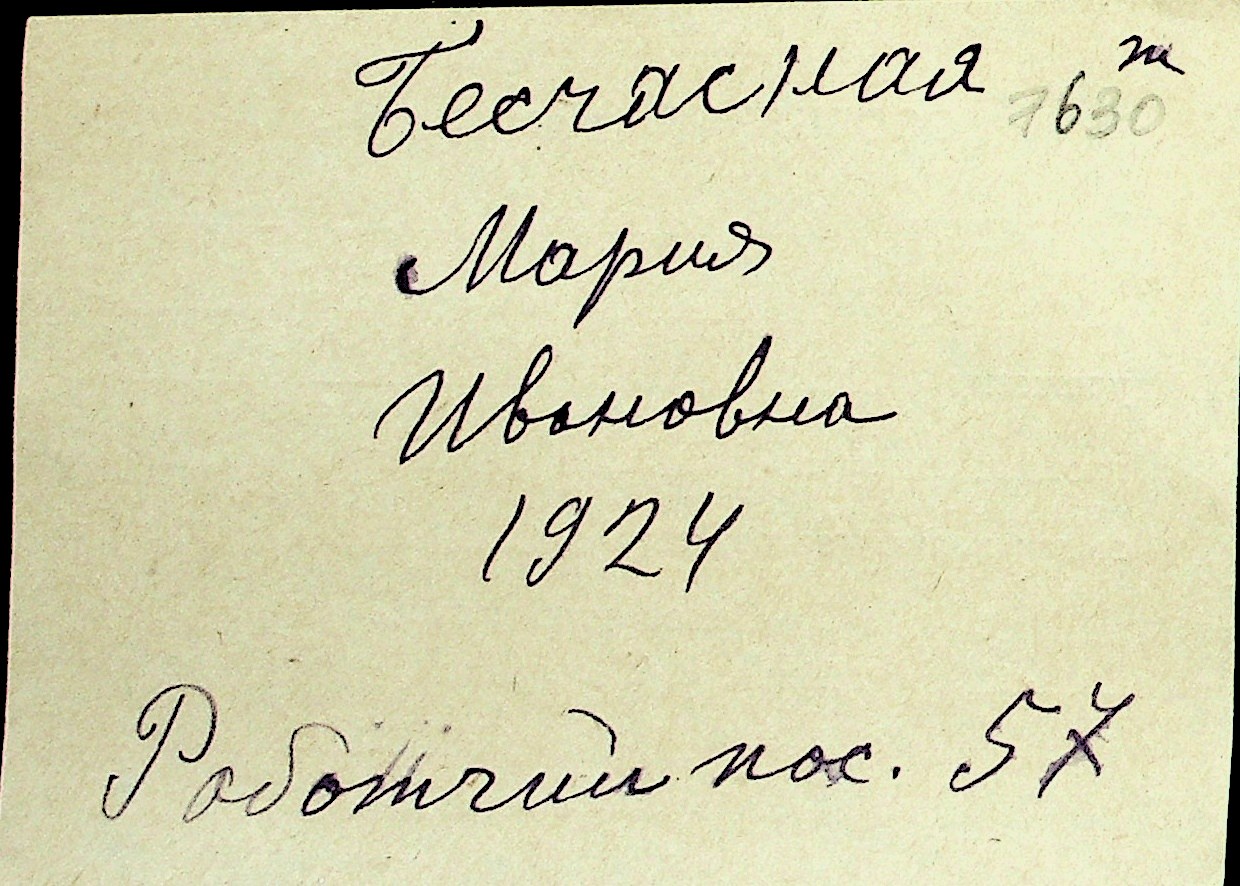 Бесчасная ж
7630
Мария
Ивановна
1924
Работчий пос. 57